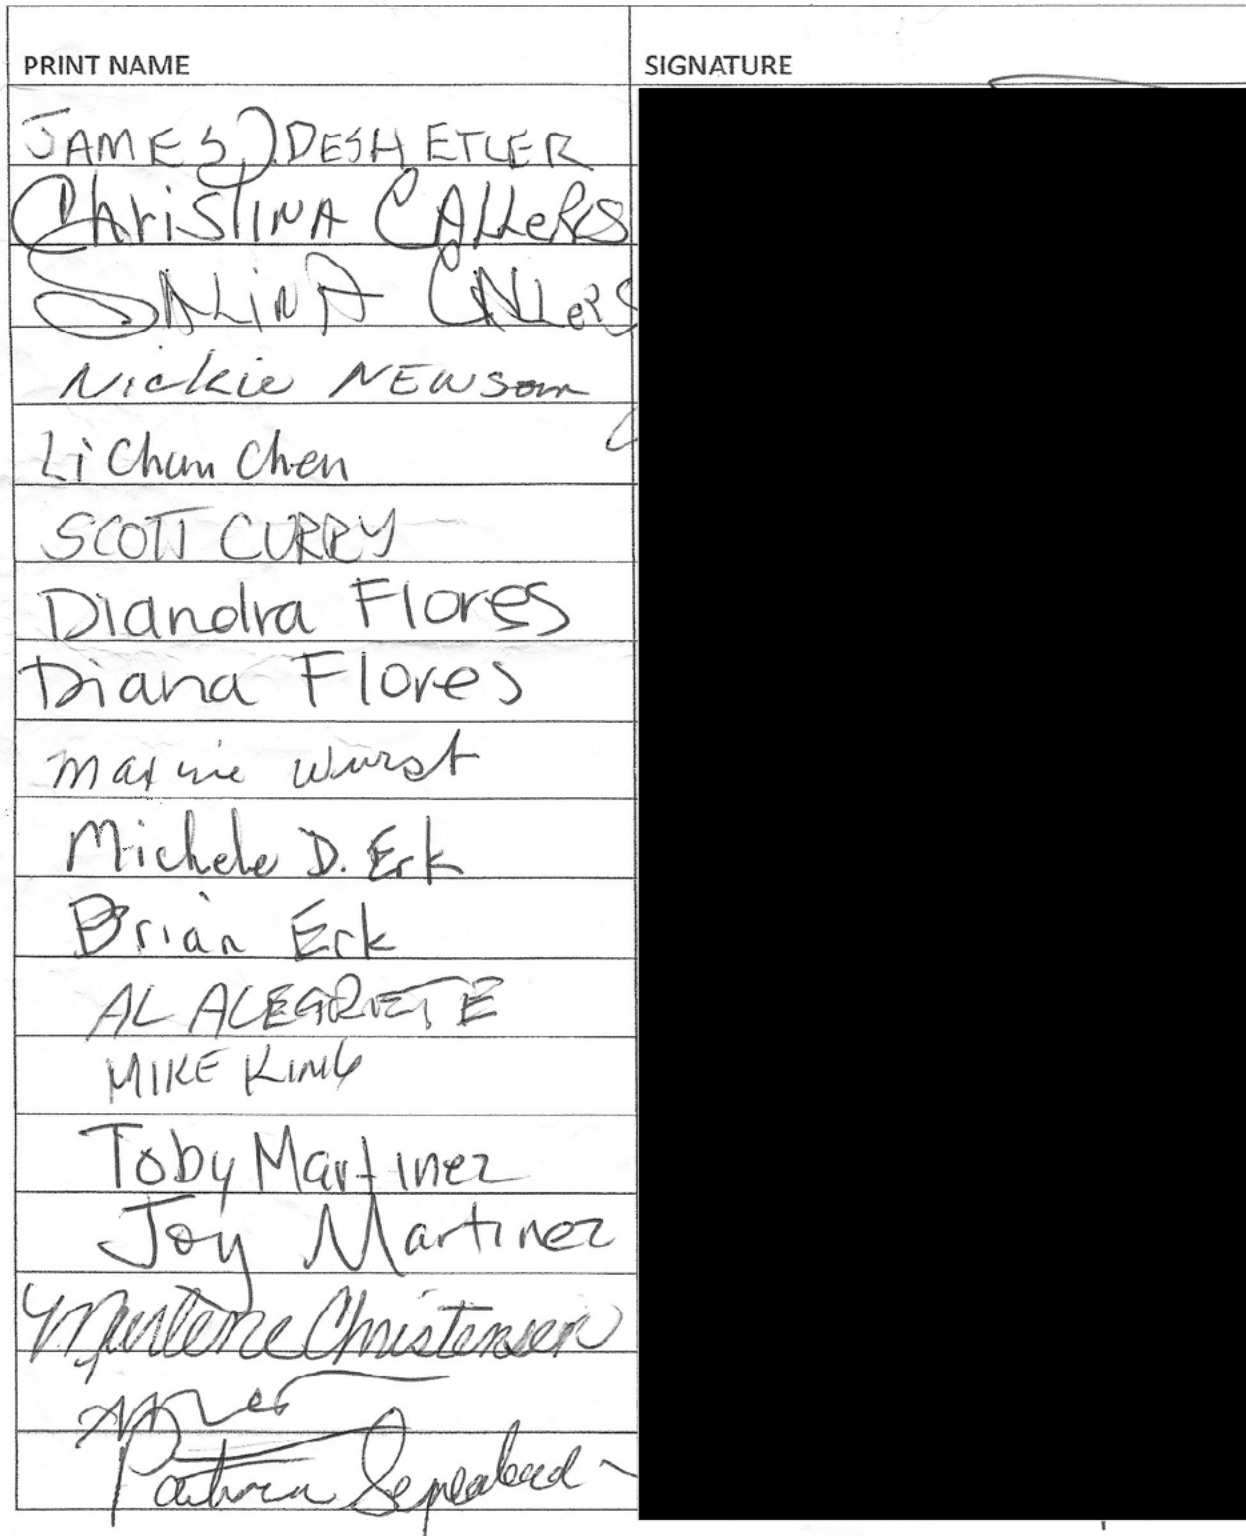 PRINT NAME SIGNATURE
JAMES J DESHETLER
CHRiSTINA CALLeRES
SALiNA CALLeRS
Nickie NEWSom
Li Chun Chen
SCOTT CURRY
Diandra Flores
Diana Flores
maxine wurst
Michele D. Erk
Brian Erk
AL ALEGRETE
MIKE KING
Toby Martinez
Joy Martinez
Marlene Christensen
Patricia